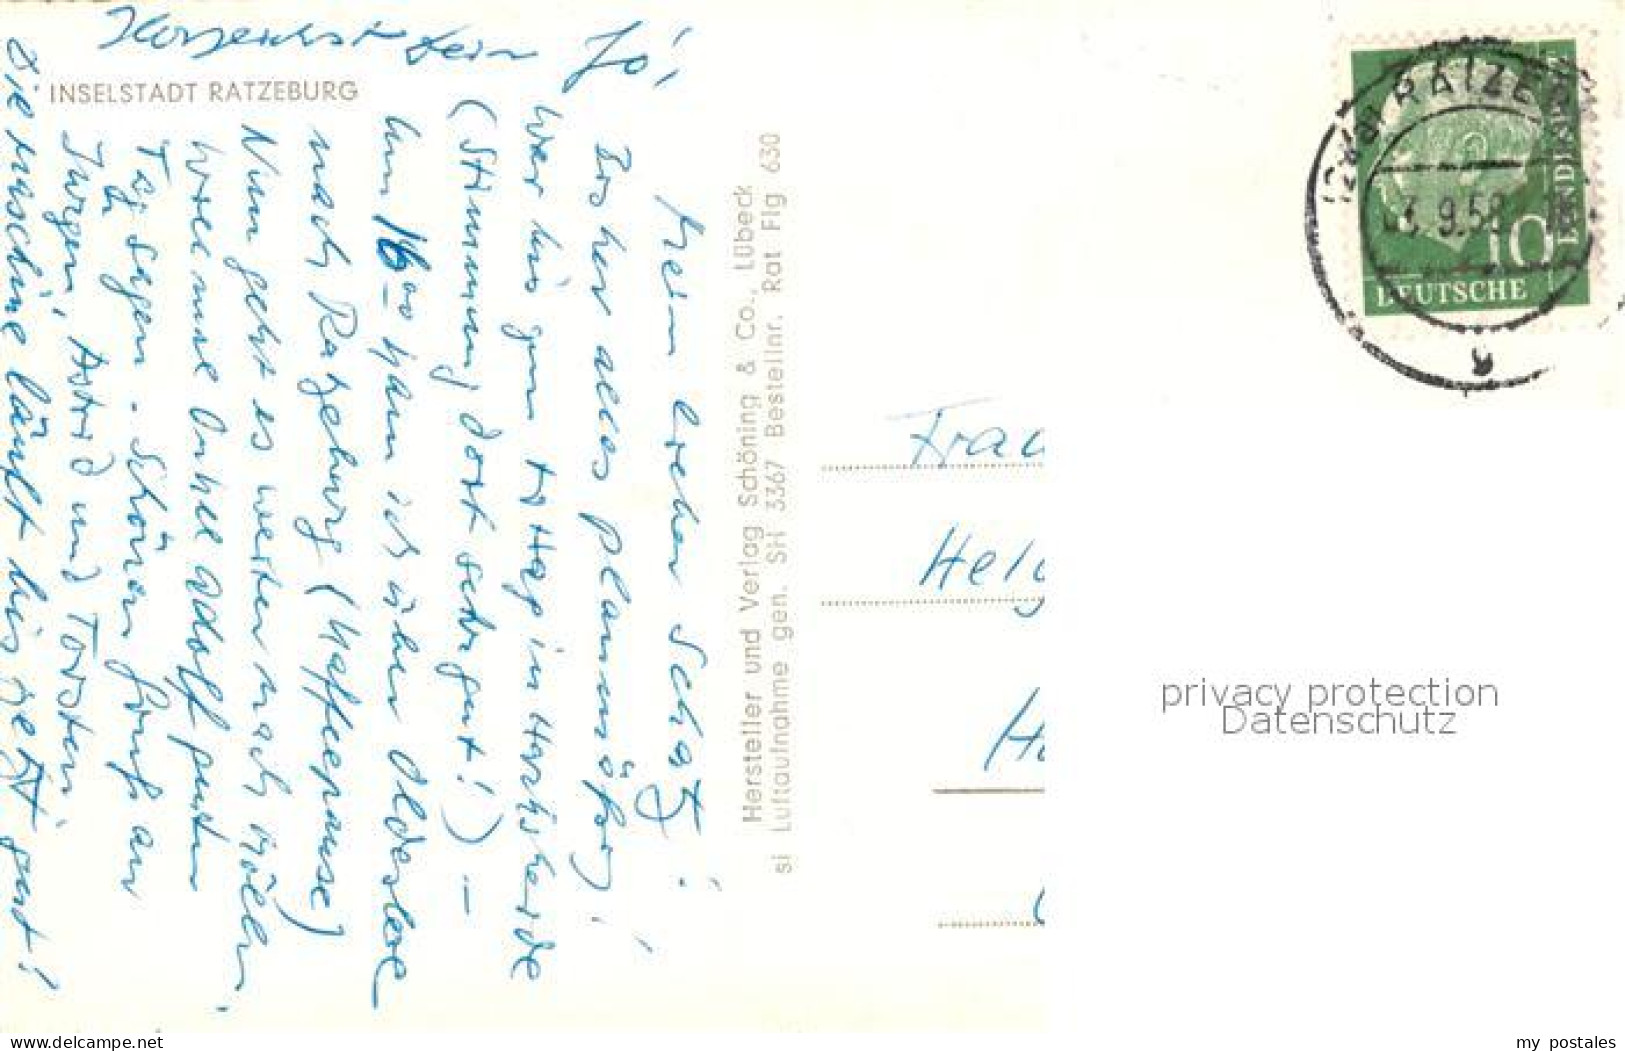 INSELSTADT RATZEBURG
Mein lieber Schatz!
Bisher alles planmäßig!
War bis zum in Harksheide
(Stimmung dort sehr gut!) –
Um 16⁰⁰ kam ich über Oldesloe
nach Ratzeburg (Kaffeepause)
Nun geht es weiter nach Mölln,
Onkel Adolf guten
Tag sagen. Schönen Gruß an
Jürgen, Astrid und Torsten.
Die Maschine läuft bis jetzt gut!
Herzlichst Dein Jo!
Hersteller und Verlag Schöning & Co., Lübeck
si Luftaufnahme gen. SH 3367 Bestellnr. Rat Flg 630
RATZEB
3. 9.58
a
10
DEUTSCHE
BUNDESPOST
Frau
Helg
privacy protection
Datenschutz
www.delcampe.net
my_postales